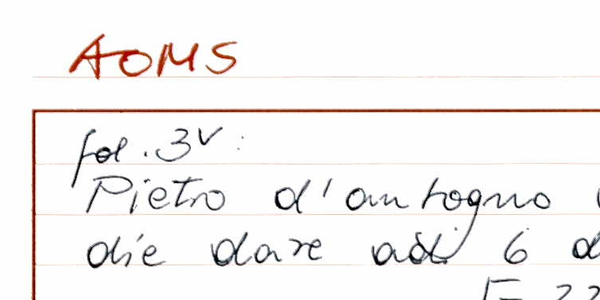 AOMS
fol. 3v:
Pietro d'antogno
die dare adi 6